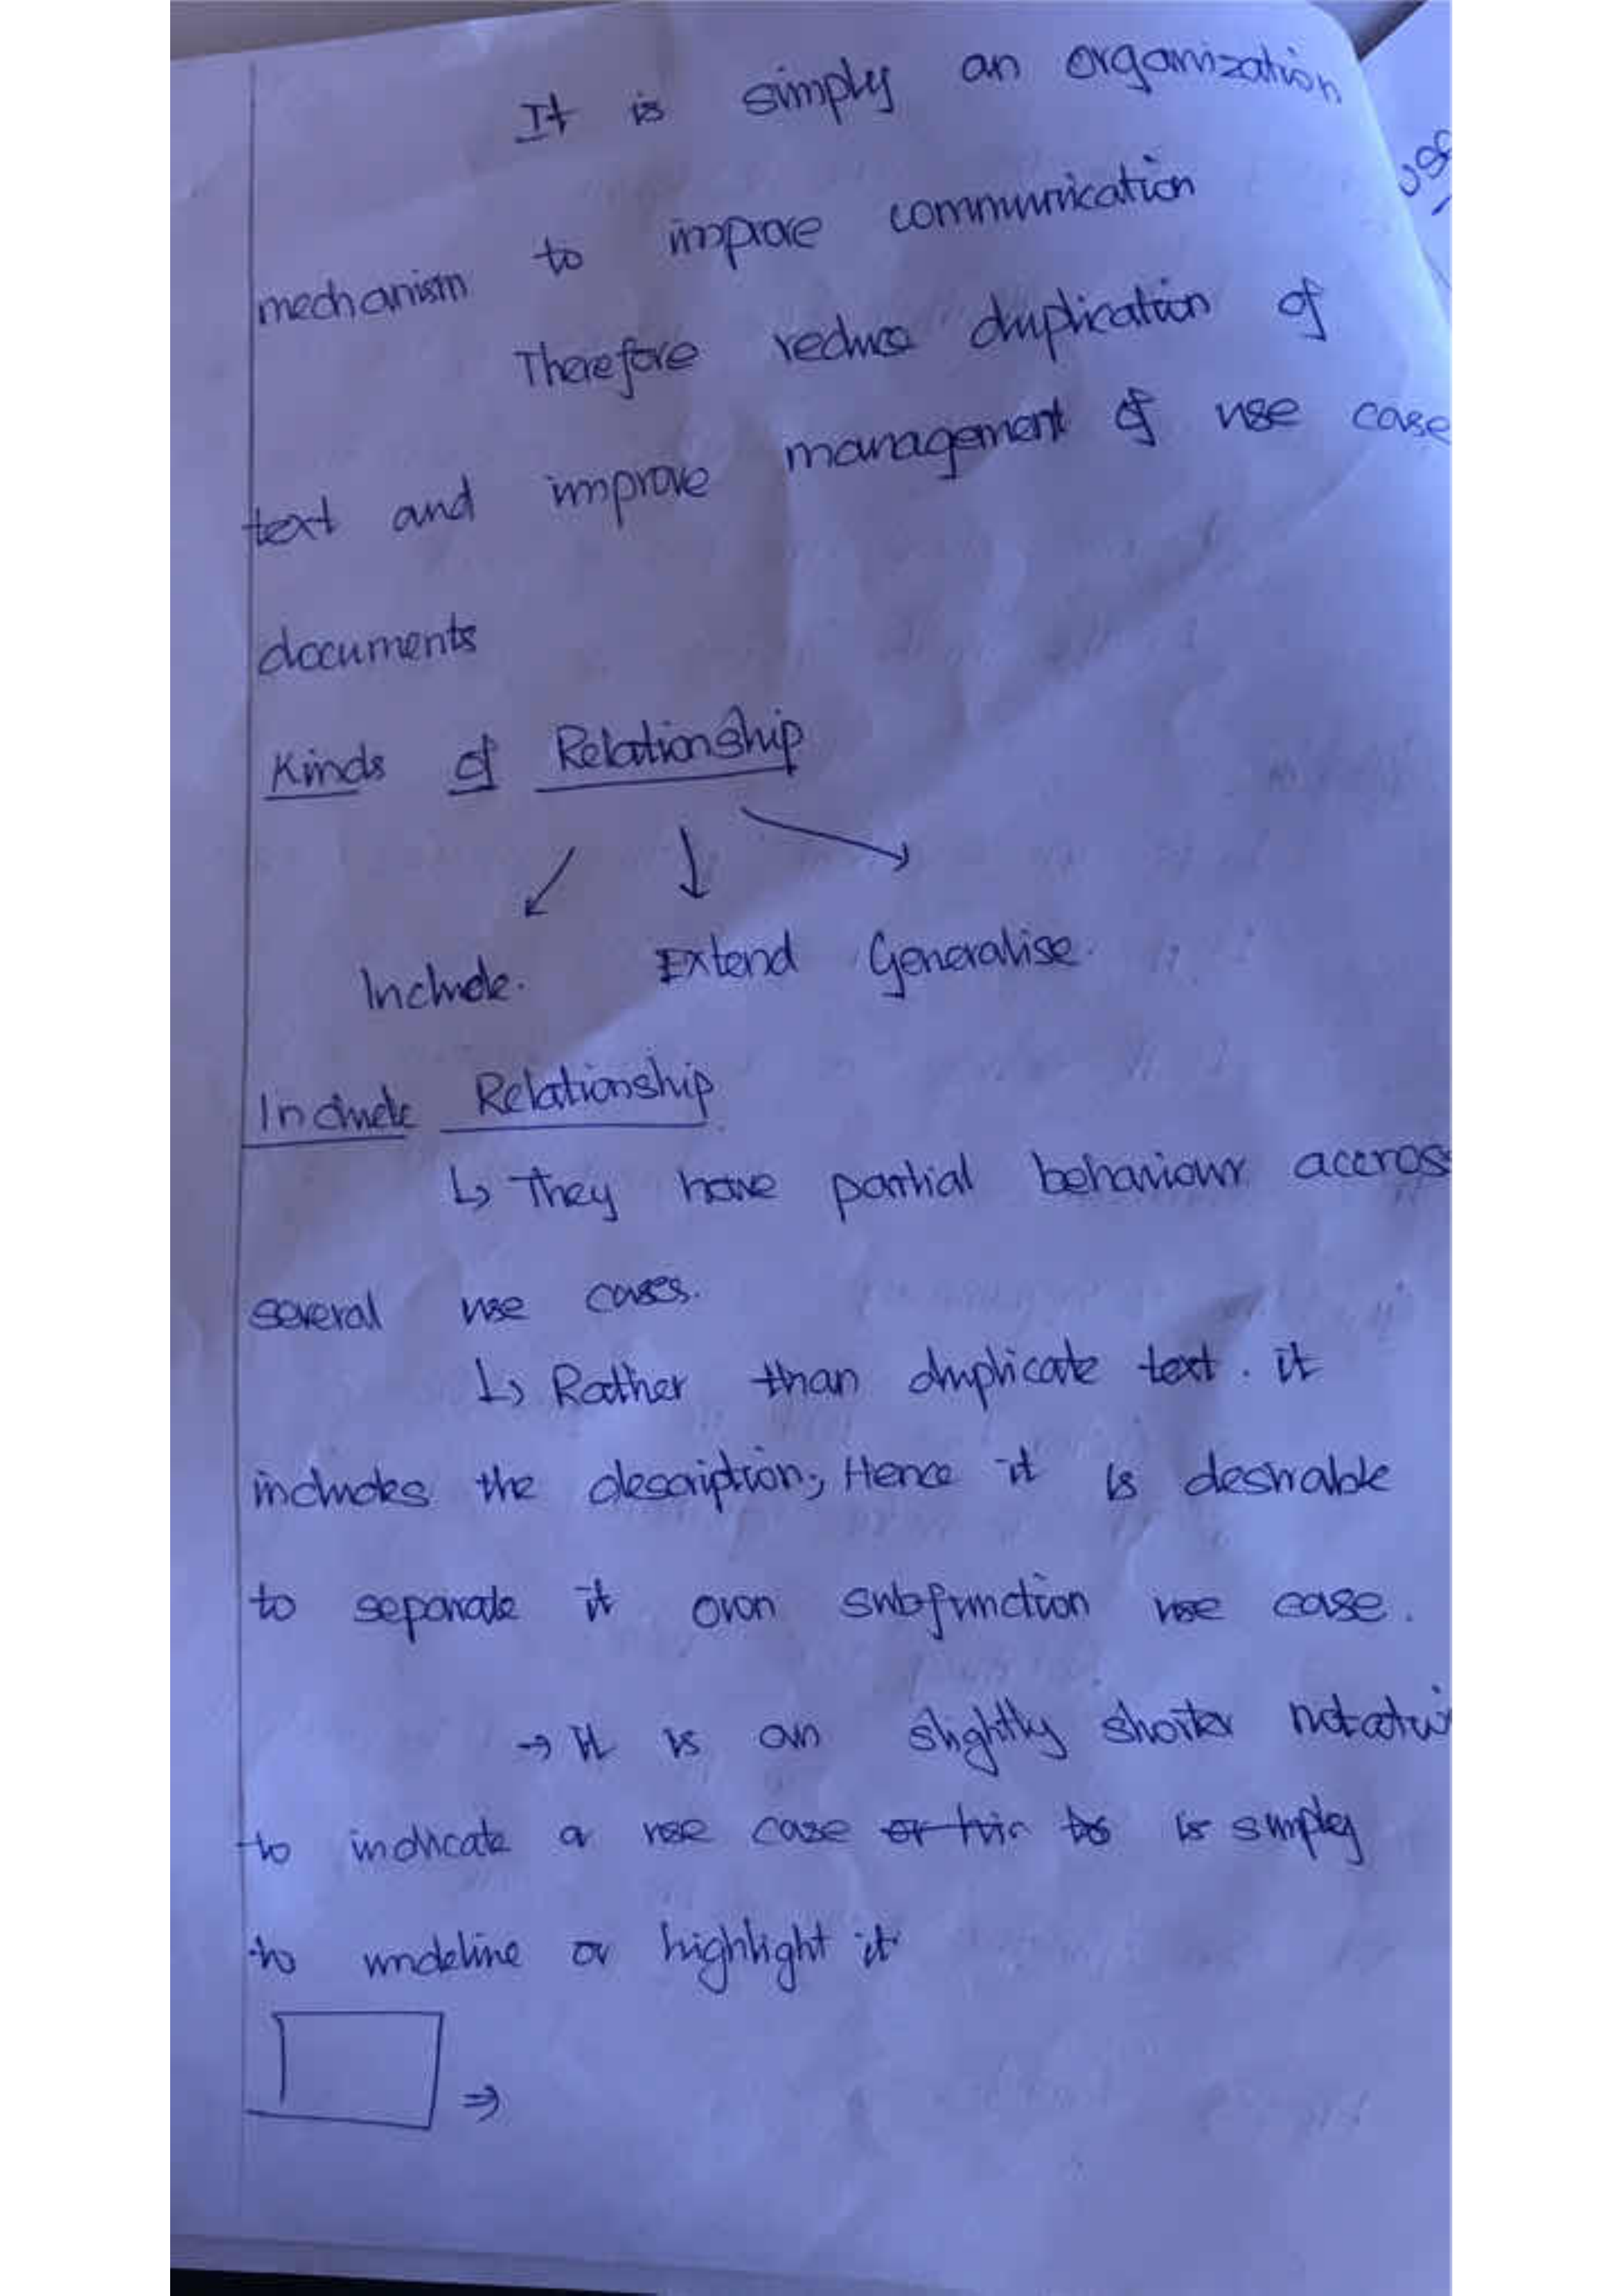 It is simply an organization
mechanism to improve communication
Therefore reduce duplication of
text and improve management of use case
documents
Kinds of Relationship
↙ ↓ ↘
Include. Extend Generalise.
Include Relationship
↳ They have partial behaviour accross
several use cases.
↳ Rather than duplicate text. it
includes the description; Hence it is desirable
to separate it own subfunction use case.
→ It is an slightly shorter notation
to indicate a use case is simpley
to undeline or highlight it
⇒
use